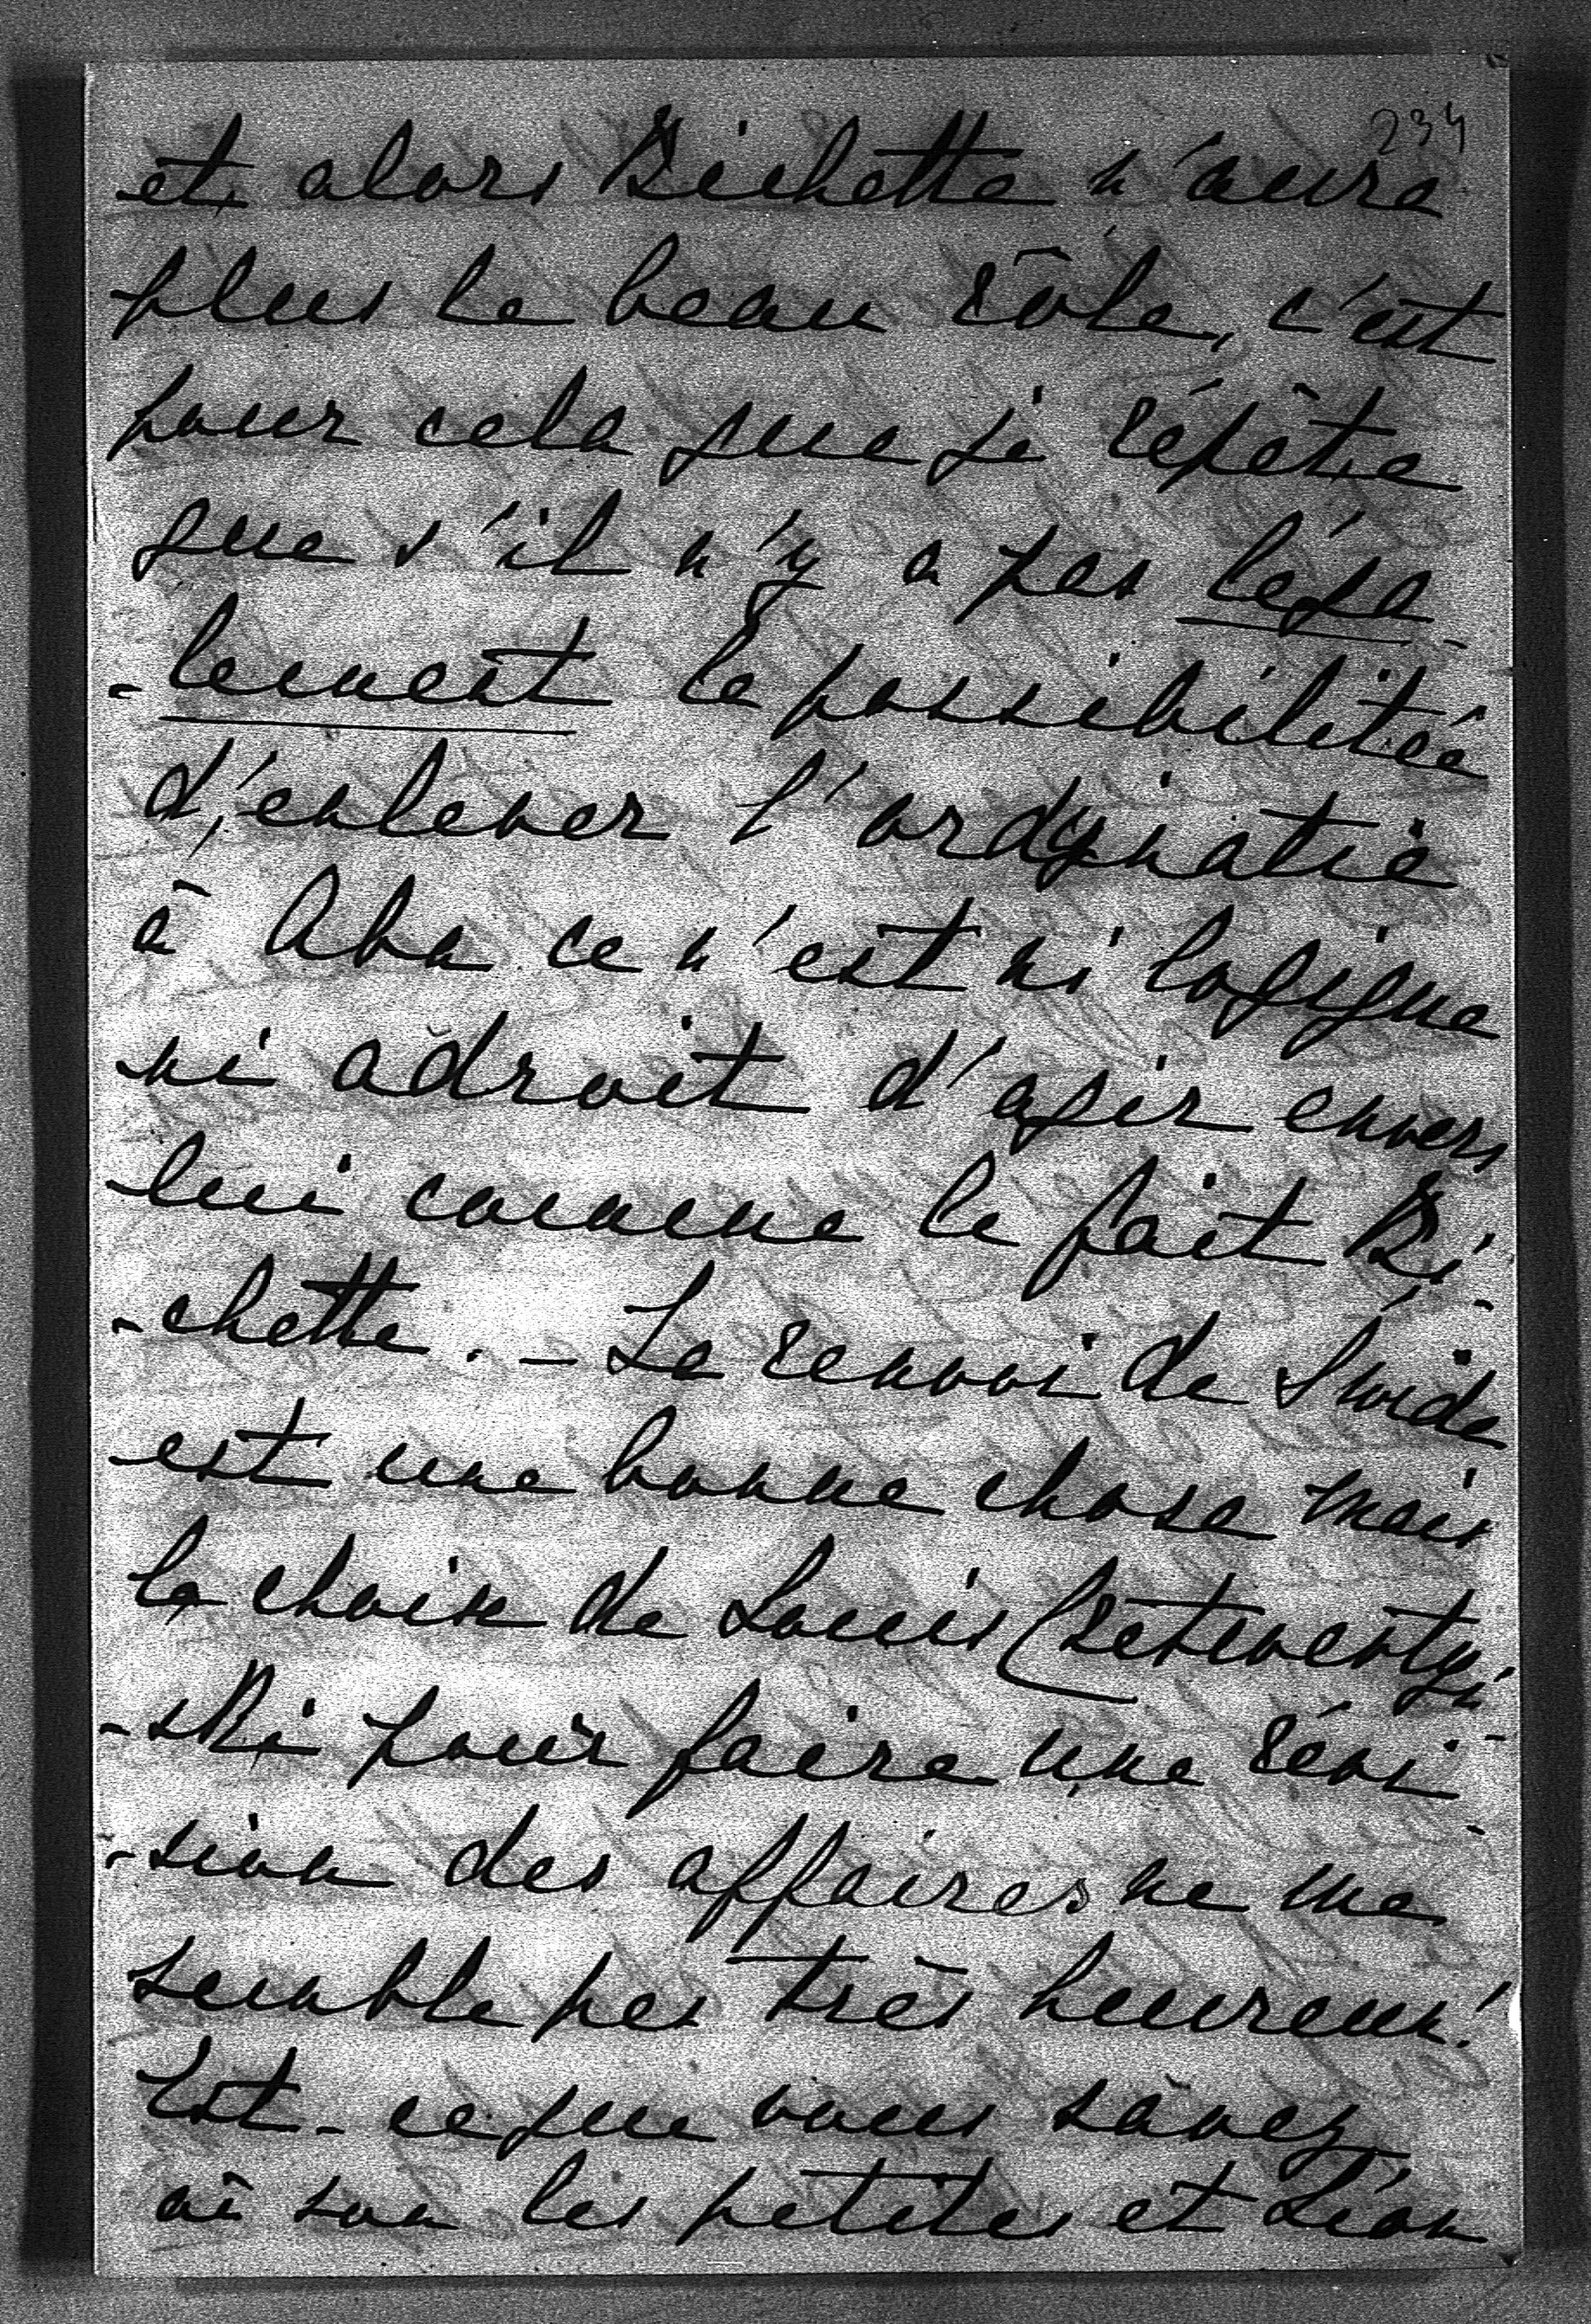 234
et alors Bichette n'aura
plus le beau rôle, c'est
pour cela que je répète
que s'il n'y a pas léga-
-lement la possibilitée
d'enlever l'ordynatie
à Aba ce n'est ni logique
ni adroit d'agir envers
lui comme le fait Bi-
-chette. – Le renvoi de Swida
est une bonne chose mais
le choix de Louis Czetwertyn-
-ski pour faire une révi-
-sion des affaires ne me
semble pas très heureux!
Est-ce que vous savez
où son les petites et Léon